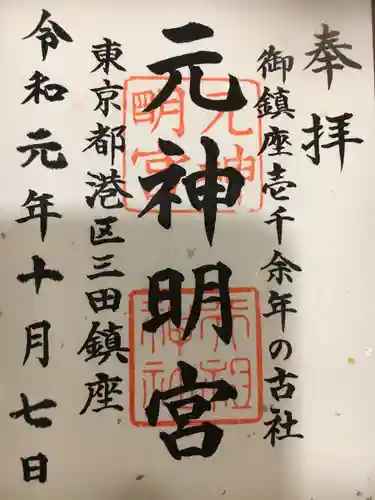 奉拝
御鎮座壱千余年の古社
元神明宮
東京都港区三田鎮座
令和元年十月七日
元神明宮